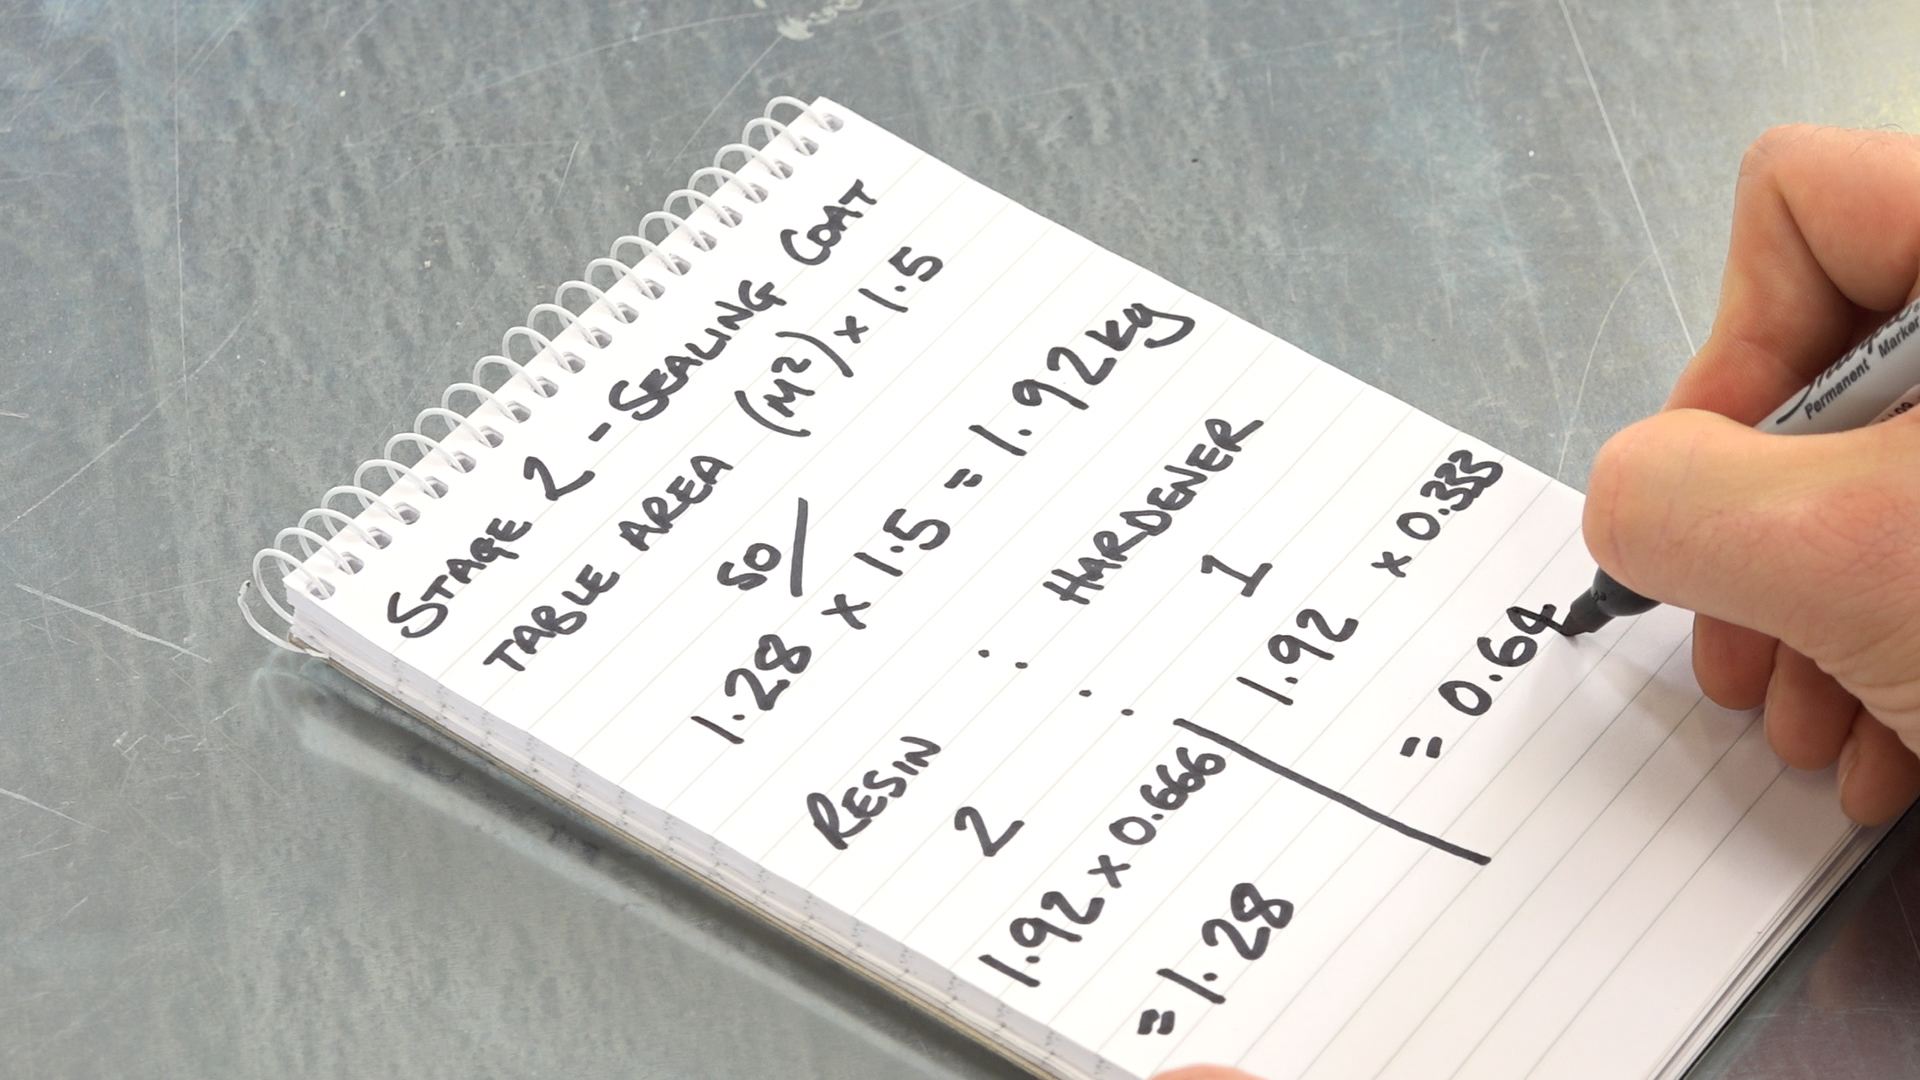 STAGE 2 - SEALING COAT
TABLE AREA (M²) × 1.5
SO/
1.28 × 1.5 = 1.92kg
RESIN : HARDENER
2 : 1
1.92 × 0.666
= 1.28
1.92 × 0.333
= 0.64
Permanent Marker